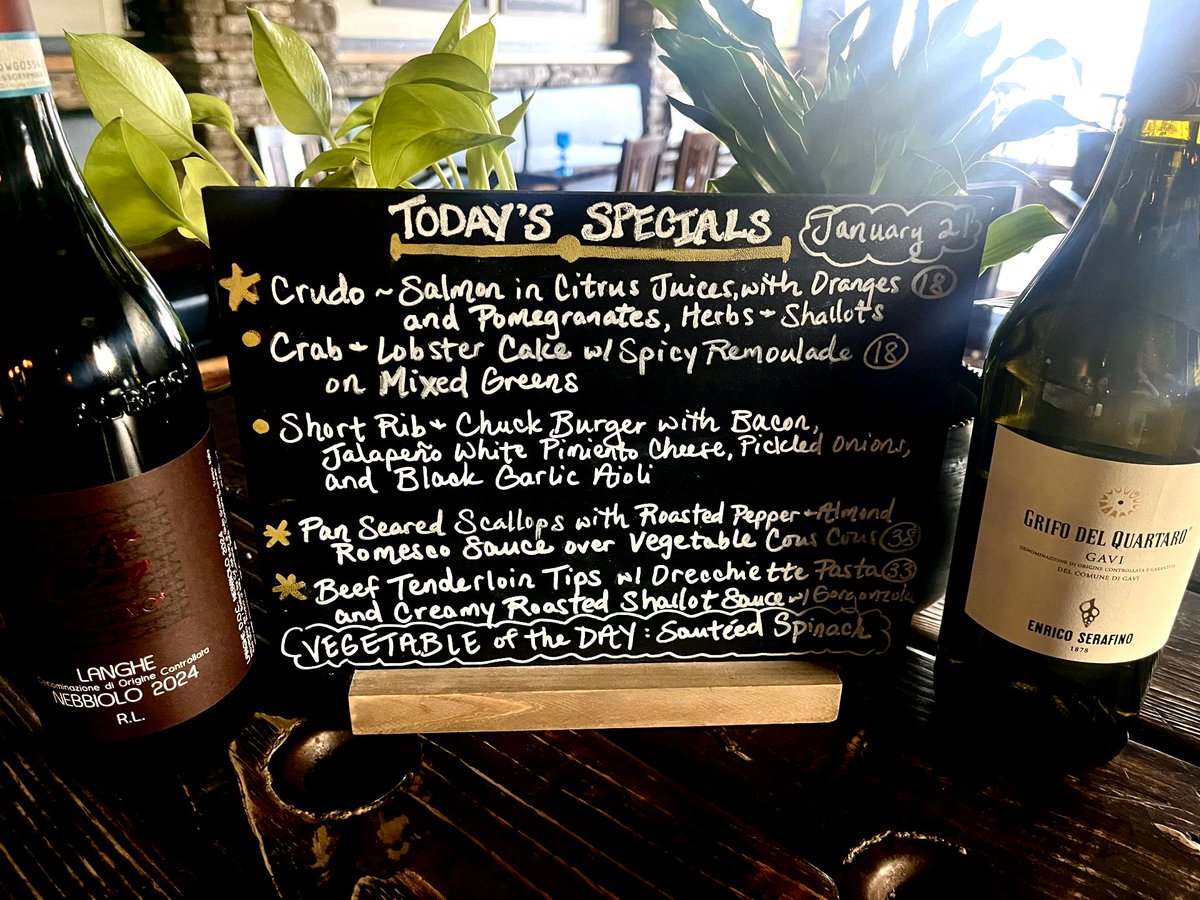 TODAY'S SPECIALS
January 21
Crudo ~ Salmon in Citrus Juices, with Oranges 18
and Pomegranates, Herbs + Shallots
Crab + Lobster Cake w/ Spicy Remoulade 18
on Mixed Greens
Short Rib + Chuck Burger with Bacon,
Jalapeño White Pimiento Cheese, Pickled Onions,
and Black Garlic Aioli
Pan Seared Scallops with Roasted Pepper + Almond
Romesco Sauce over Vegetable Cous Cous 38
Beef Tenderloin Tips w/ Orecchiette Pasta 33
and Creamy Roasted Shallot Sauce w/ Gorgonzola
VEGETABLE of the DAY: Sautéed Spinach
LANGHE
Denominazione di Origine Controllata
NEBBIOLO 2024
R.L.
GRIFO DEL QUARTARO
GAVI
DENOMINAZIONE DI ORIGINE CONTROLLATA E GARANTITA
DEL COMUNE DI GAVI
ENRICO SERAFINO
1878